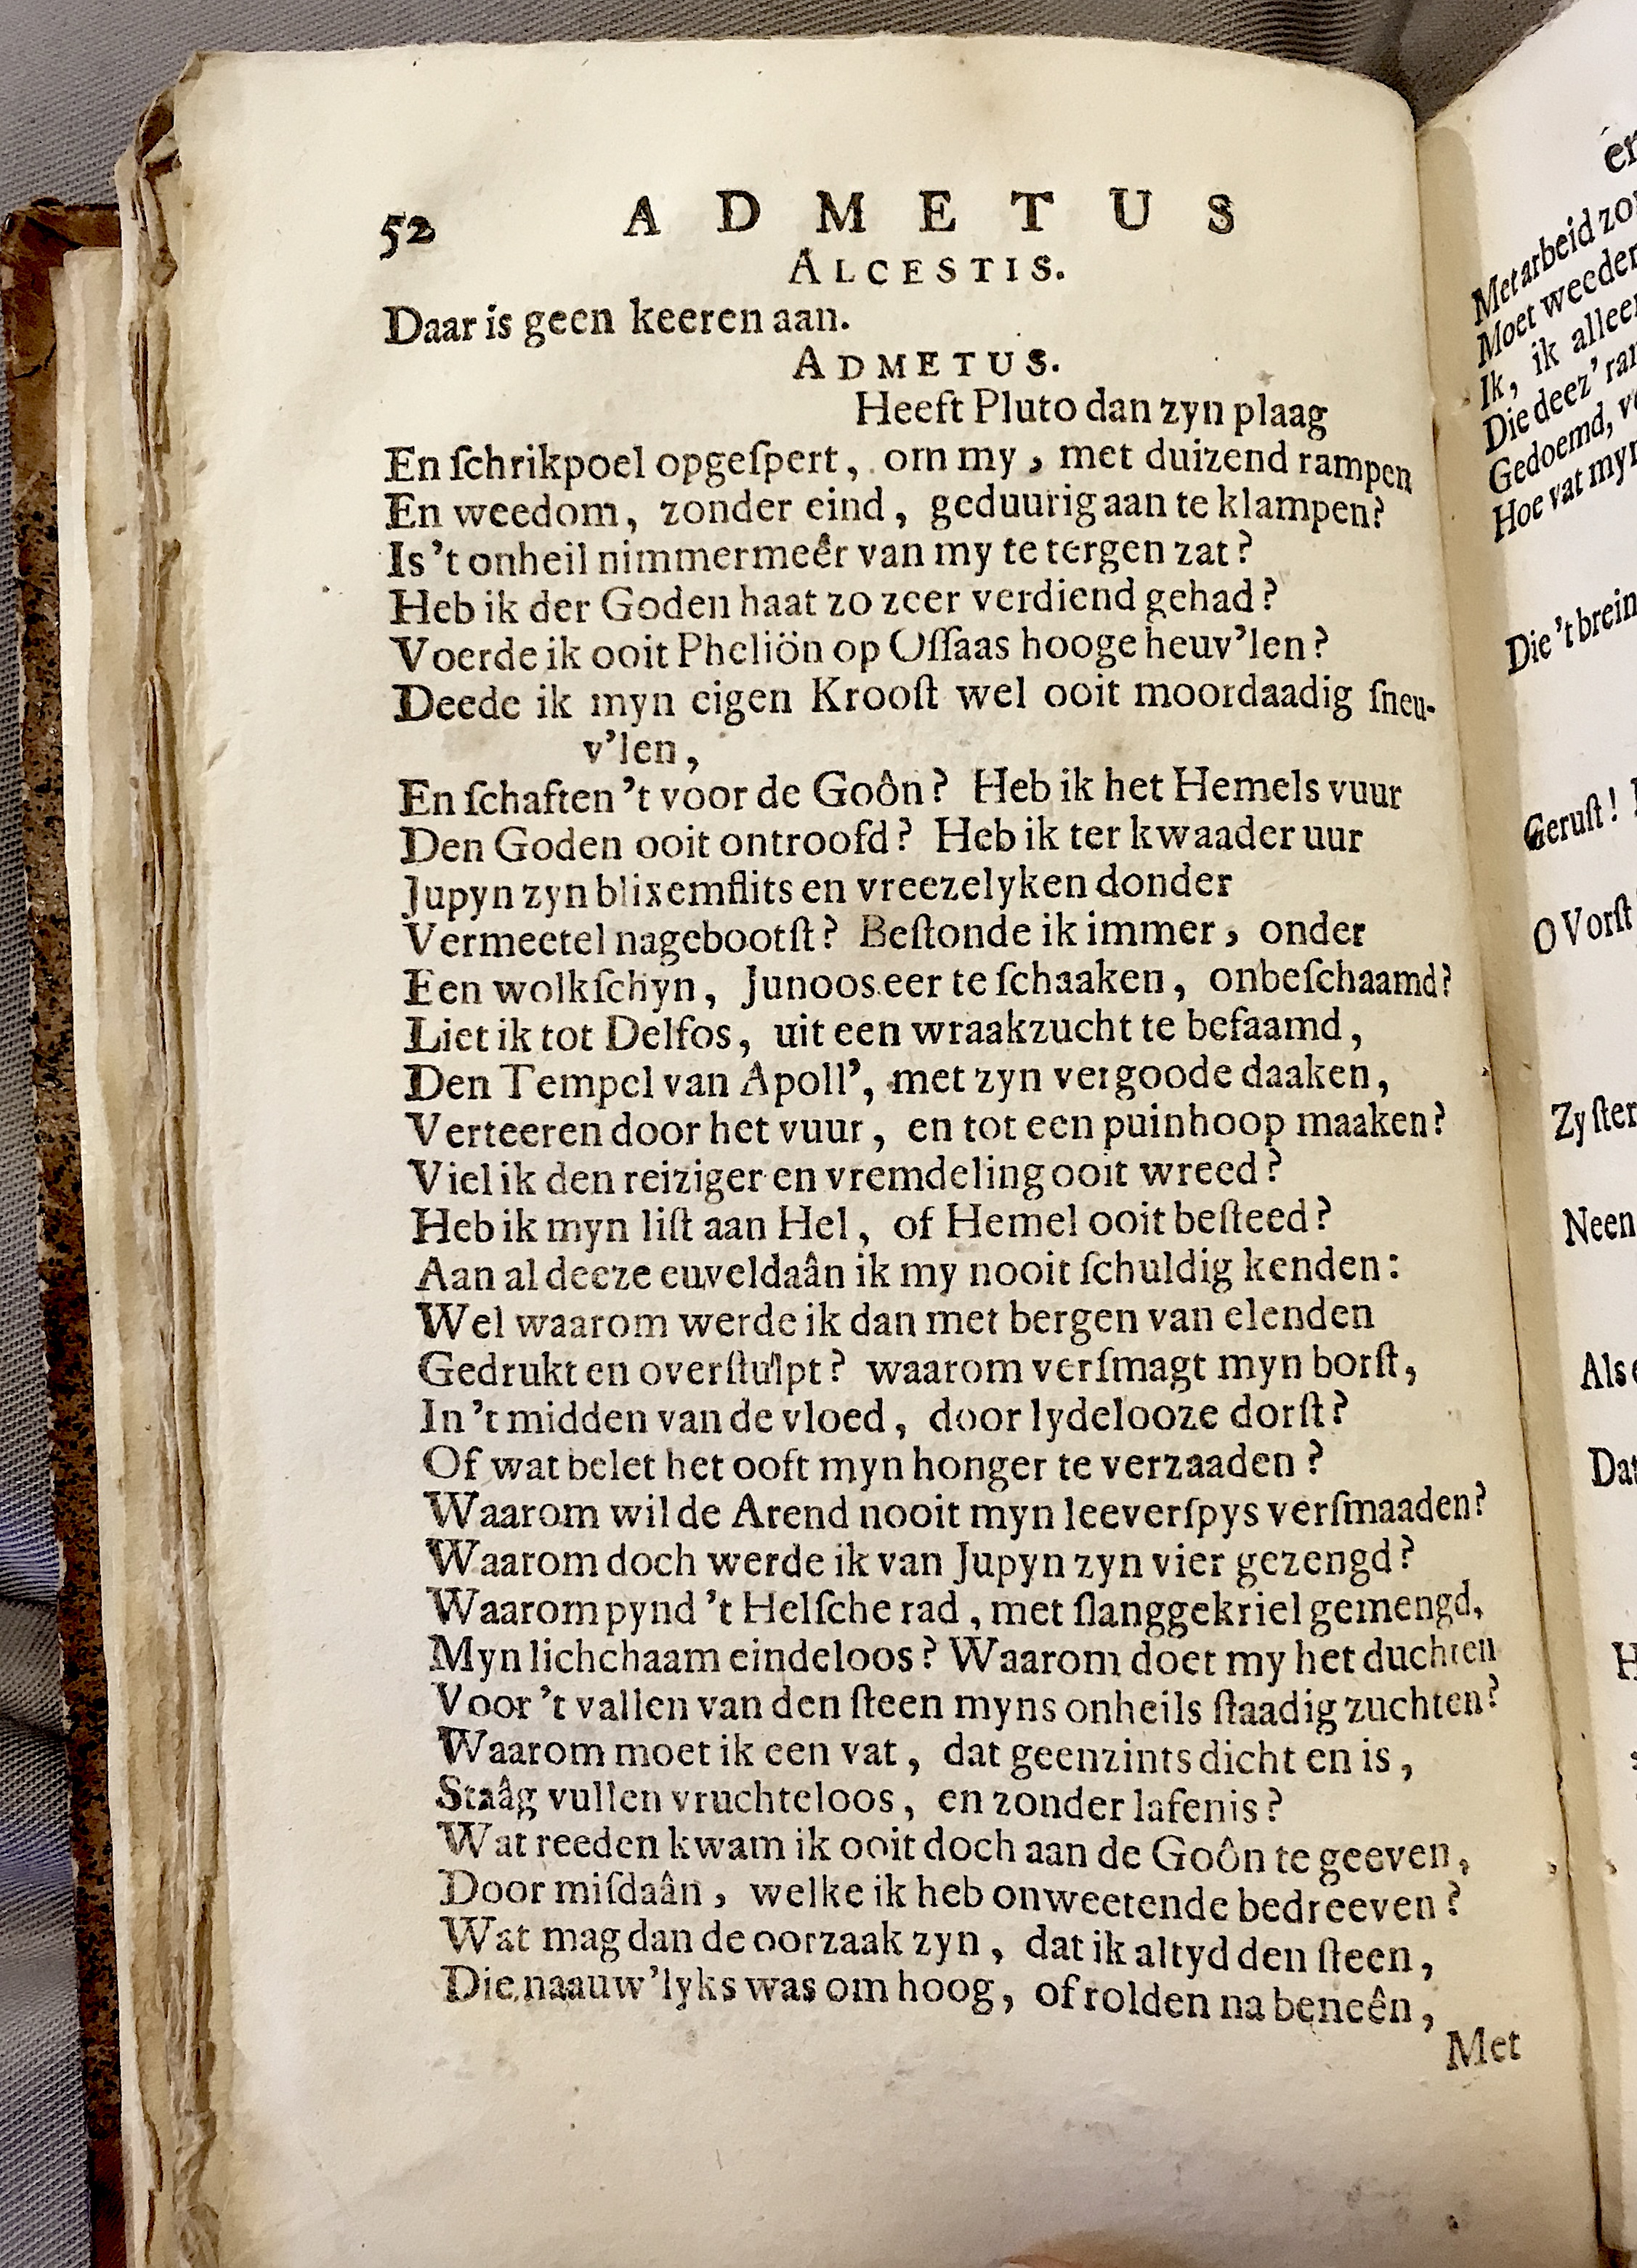 52 ADMETUS
ALCESTIS.
Daar is geen keeren aan.
ADMETUS.
Heeft Pluto dan zyn plaag
En ſchrikpoel opgeſpert, om my, met duizend rampen
En weedom, zonder eind, geduurig aan te klampen?
Is 't onheil nimmermeêr van my te tergen zat?
Heb ik der Goden haat zo zeer verdiend gehad?
Voerde ik ooit Pheliön op Oſſaas hooge heuv'len?
Deede ik myn eigen Krooſt wel ooit moordaadig ſneu-
v'len,
En ſchaften 't voor de Goôn? Heb ik het Hemels vuur
Den Goden ooit ontroofd? Heb ik ter kwaader uur
Jupyn zyn blixemflits en vreezelyken donder
Vermeetel nagebootſt? Beſtonde ik immer, onder
Een wolkſchyn, Junoos eer te ſchaaken, onbeſchaamd?
Liet ik tot Delfos, uit een wraakzucht te befaamd,
Den Tempel van Apoll', met zyn vergoode daaken,
Verteeren door het vuur, en tot een puinhoop maaken?
Viel ik den reiziger en vremdeling ooit wreed?
Heb ik myn liſt aan Hel, of Hemel ooit beſteed?
Aan al deeze euveldaân ik my nooit ſchuldig kenden:
Wel waarom werde ik dan met bergen van elenden
Gedrukt en overſtulpt? waarom verſmagt myn borſt,
In 't midden van de vloed, door lydelooze dorſt?
Of wat belet het ooft myn honger te verzaaden?
Waarom wil de Arend nooit myn leeverſpys verſmaaden?
Waarom doch werde ik van Jupyn zyn vier gezengd?
Waarom pynd 't Helſche rad, met ſlanggekriel gemengd,
Myn lichchaam eindeloos? Waarom doet my het duchten
Voor 't vallen van den ſteen myns onheils ſtaadig zuchten?
Waarom moet ik een vat, dat geenzints dicht en is,
Staâg vullen vruchteloos, en zonder lafenis?
Wat reeden kwam ik ooit doch aan de Goôn te geeven,
Door miſdaân, welke ik heb onweetende bedreeven?
Wat mag dan de oorzaak zyn, dat ik altyd den ſteen,
Die naauw'lyks was om hoog, of rolden na beneên,
Met
er
Met arbeid zo
Moet weeder
Ik, ik alleen
Die deez' ra
Gedoemd, v
Hoe vat myn
Die 't brein
Geruſt!
O Vorſt
Zy ſter
Neen
Als
Dat
H